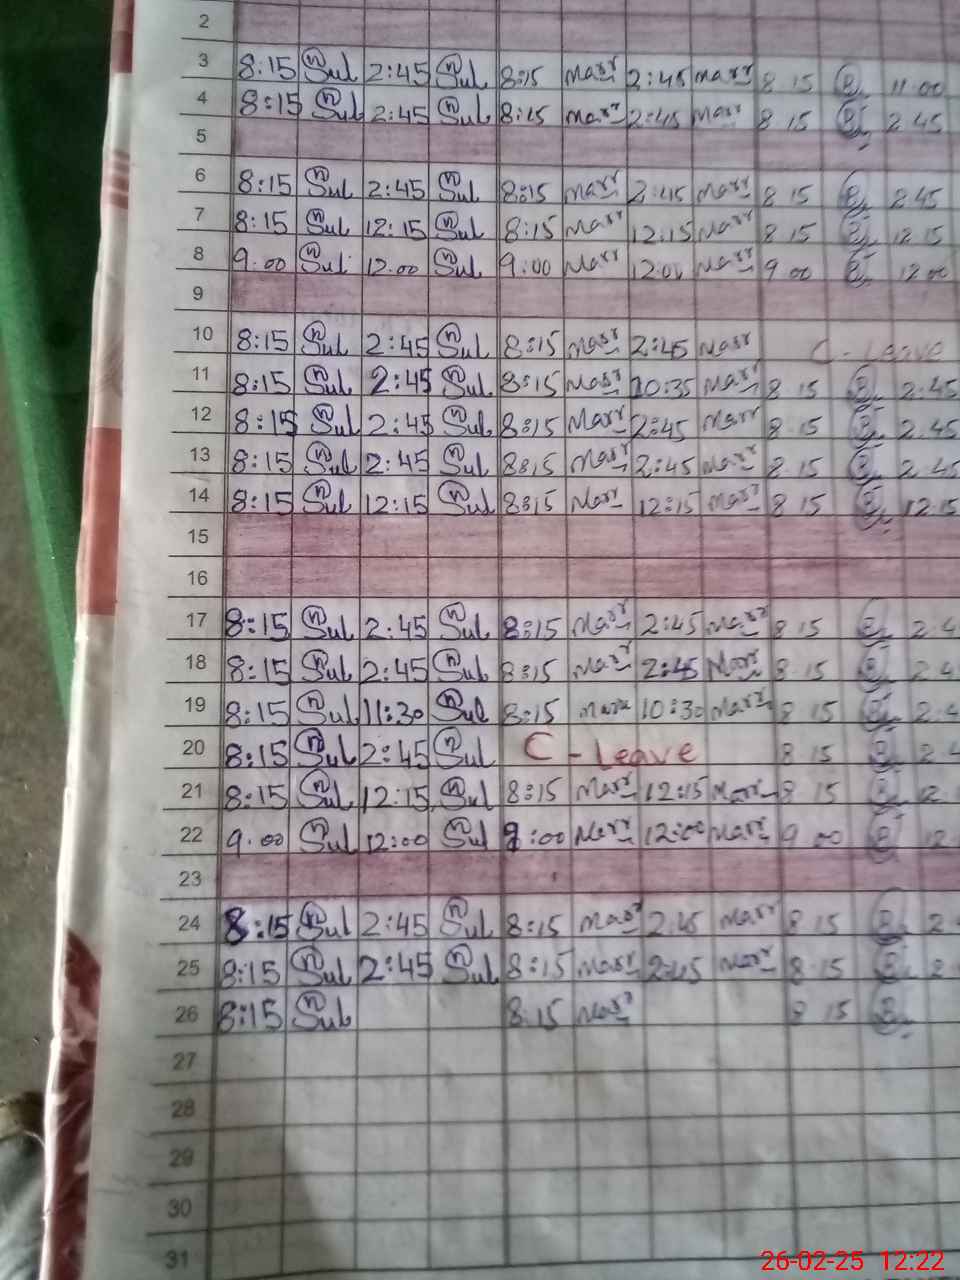 2
3 8:15 Sul 2:45 Sul 8:15 Marr 2:45 Marr 8 15 11 00
4 8:15 Sul 2:45 Sul 8:15 Marr 2:45 Marr 8 15 2 45
5
6 8:15 Sul 2:45 Sul 8:15 Marr 2:45 Marr 8 15 2 45
7 8:15 Sul 12:15 Sul 8:15 Marr 12:15 Marr 8 15 12 15
8 9:00 Sul 12:00 Sul 9:00 Marr 12:00 Marr 9 00 12 00
9
10 8:15 Sul 2:45 Sul 8:15 Marr 2:45 Marr C - Leave
11 8:15 Sul 2:45 Sul 8:15 Marr 10:35 Marr 8 15 2:45
12 8:15 Sul 2:45 Sul 8:15 Marr 2:45 Marr 8 15 2 45
13 8:15 Sul 2:45 Sul 8:15 Marr 2:45 Marr 8 15 2 45
14 8:15 Sul 12:15 Sul 8:15 Marr 12:15 Marr 8 15 12 15
15
16
17 8:15 Sul 2:45 Sul 8:15 Marr 2:45 Marr 8 15 2 4
18 8:15 Sul 2:45 Sul 8:15 Marr 2:45 Marr 8 15 2 4
19 8:15 Sul 11:30 Sul 8:15 Marr 10:30 Marr 8 15 2 4
20 8:15 Sul 2:45 Sul C - Leave 8 15 2 4
21 8:15 Sul 12:15 Sul 8:15 Marr 12:15 Marr 8 15 12
22 9:00 Sul 12:00 Sul 9:00 Marr 12:00 Marr 9 00 12
23
24 8:15 Sul 2:45 Sul 8:15 Marr 2:45 Marr 8 15 2
25 8:15 Sul 2:45 Sul 8:15 Marr 2:45 Marr 8 15 2
26 8:15 Sul 8:15 Marr 8 15
27
28
29
30
31
26-02-25 12:22